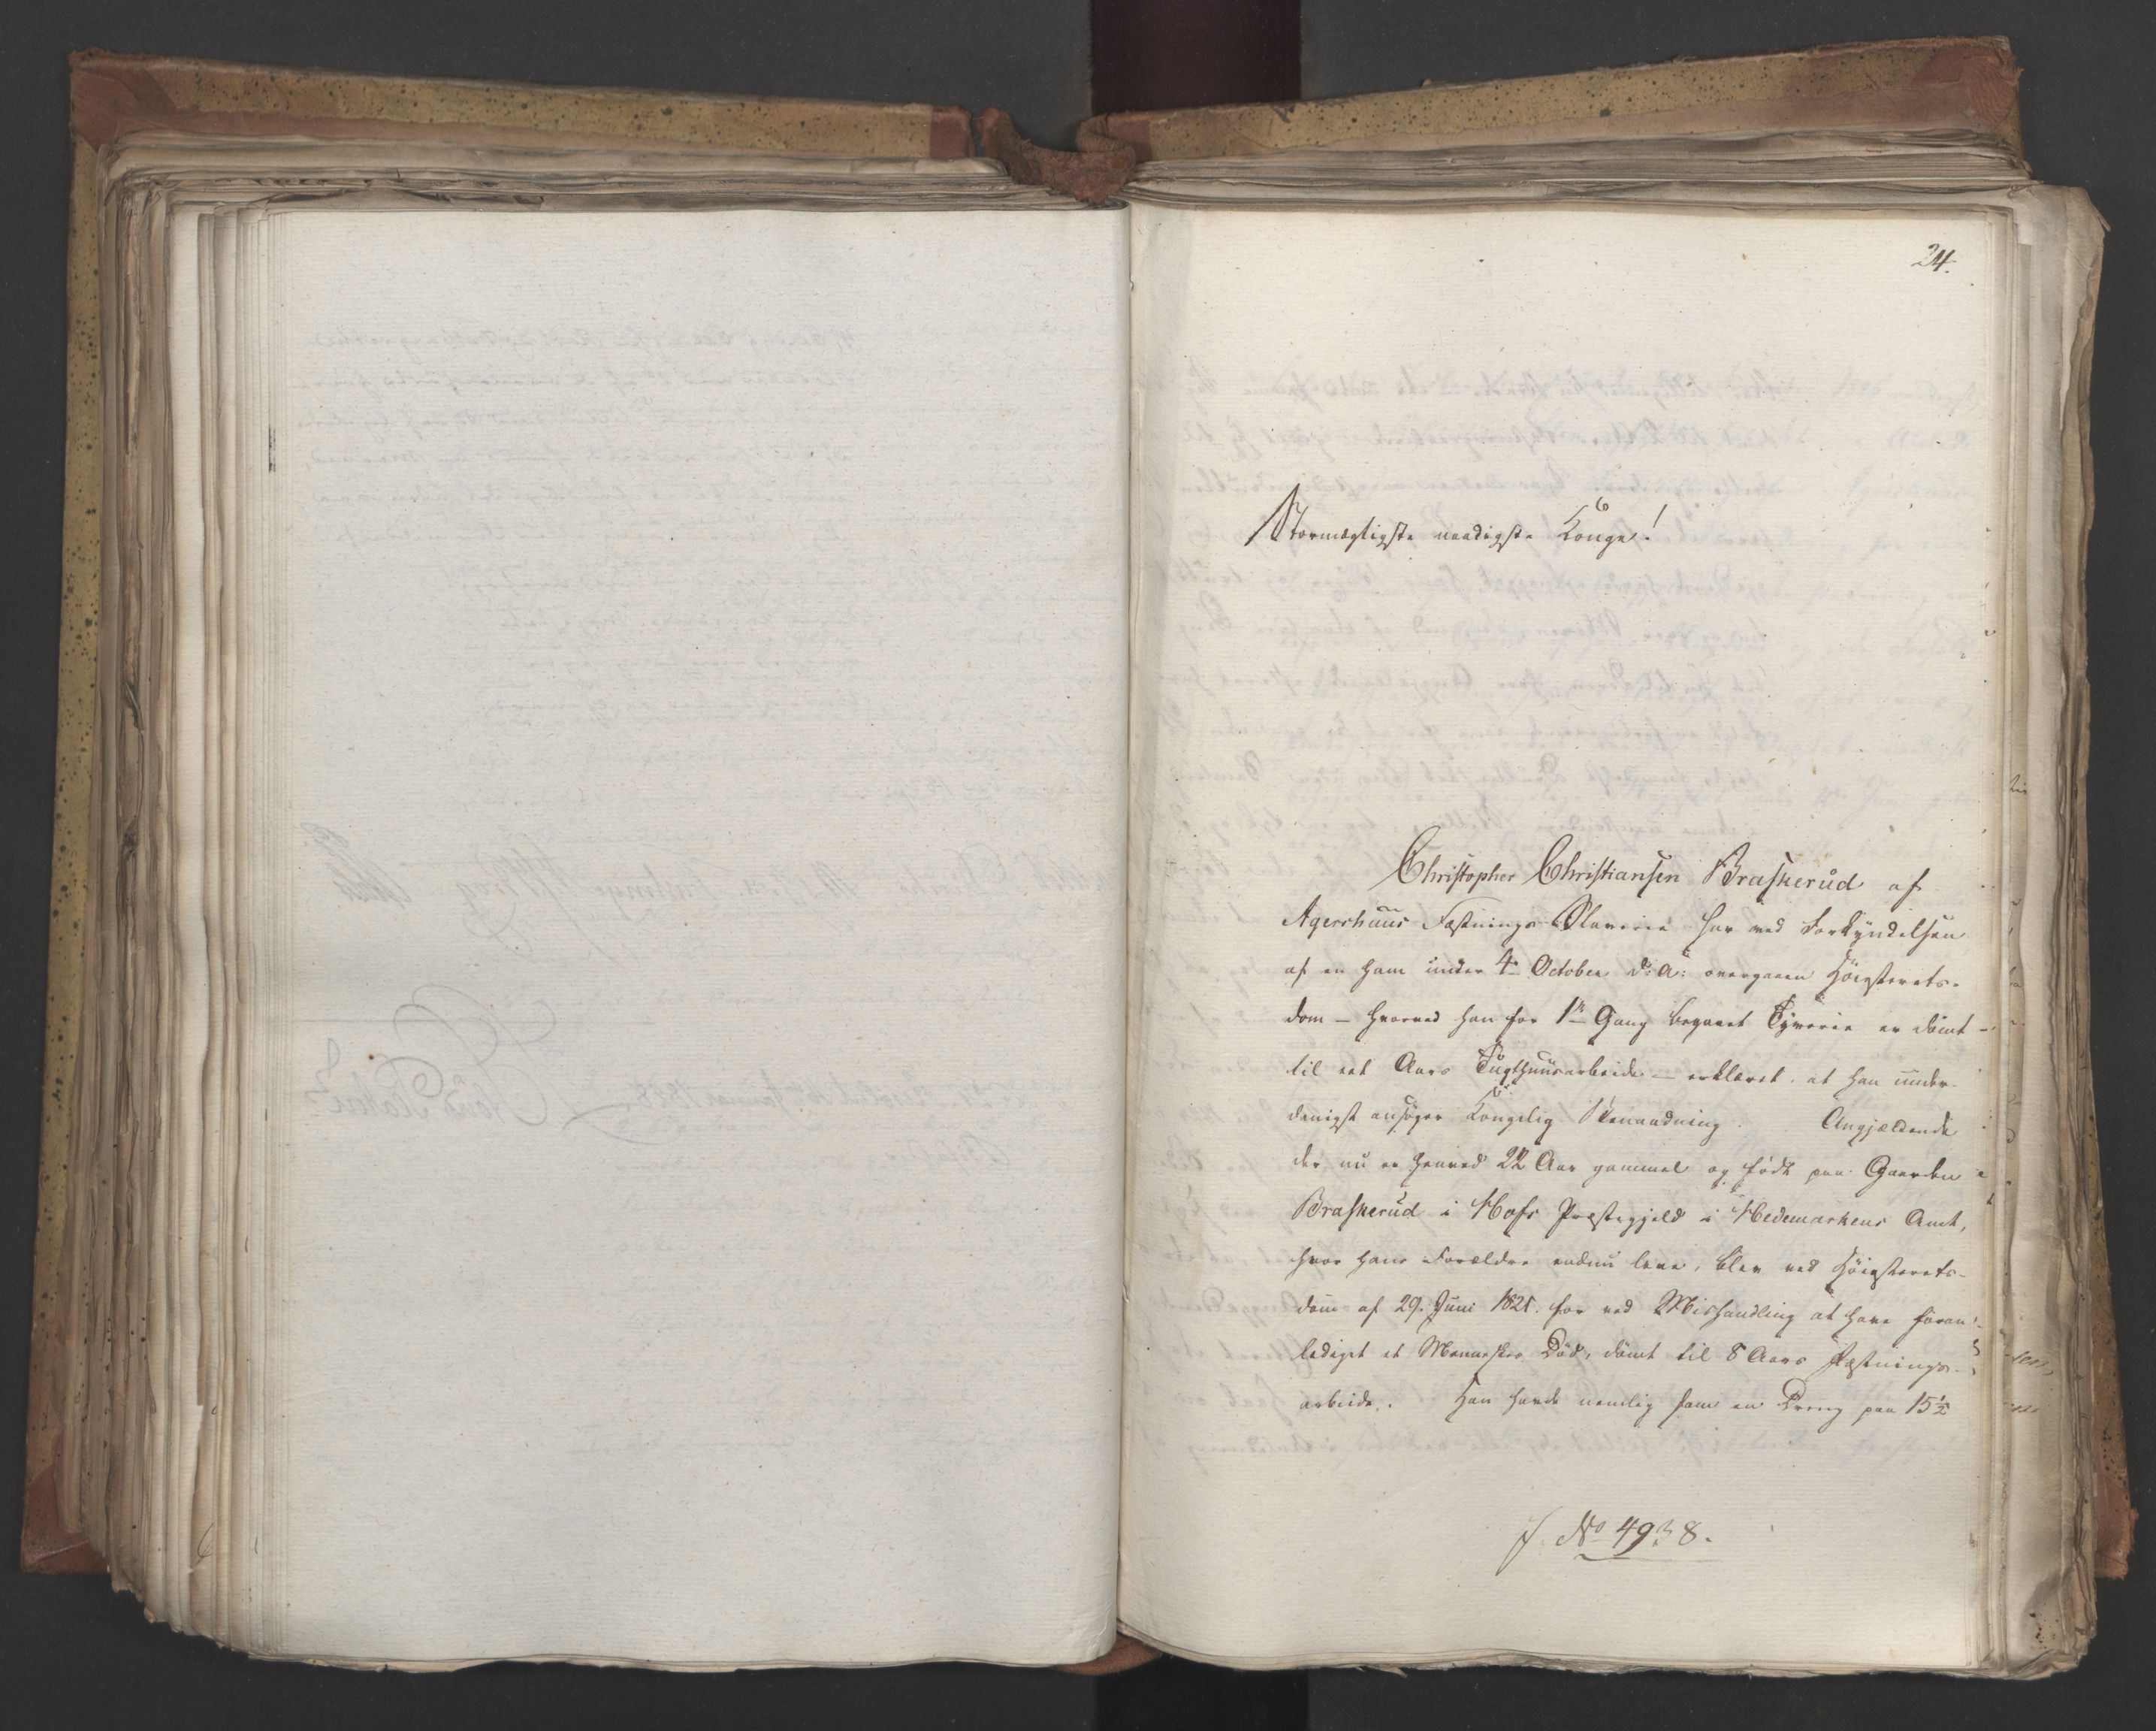 24.
Stormægtigste naadigste Konge!
Christopher Christiansen Braskerud af
Agershuus Fæstnings Slaverie har ved Forkyndelsen
af en ham under 4de October d: A: overgaaen Høiesterets-
dom – hvorved han for 1ste Gang begaaet Tyverie er dømt
til eet Aars Tugthuusarbeide – erklæret, at han under-
danigst ansøger Kongelig Benaadning. Angjældende
der nu er henved 22 Aar gammel og født paa Gaarden
Braskerud i Hofs Præstegjeld i Hedemarkens Amt,
hvor hans Forældre endnu leve, blev ved Høiesterets-
dom af 29. Juni 1821. for ved Mishandling at have foran-
lediget et Menneskes Død, dømt til 8 Aars Fæstnings-
arbeide. Han havde nemlig som en Dreng paa 15½
J. No 4938.